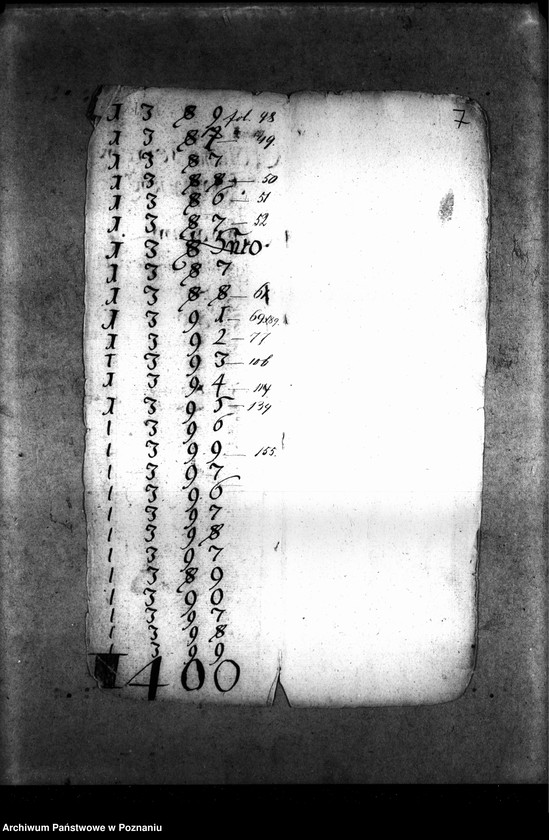 7
1 3 8 9 fol. 48
1 3 8 7 — 49.
1 3 8 7
1 3 8 8 — 50
1 3 8 6 — 51
1 3 8 7 — 52
1 3 8 5nto.
1 3 8 7
1 3 8 8 —
1 3 9 1 — 69
1 3 9 2 — 77
1 3 9 3 — 106
1 3 9 4 — 114
1 3 9 5 — 134
1 3 9 6
1 3 9 9 — 155.
1 3 9 7
1 3 9 6
1 3 9 7
1 3 9 8
1 3 9 7
1 3 8 9
1 3 9 0
1 3 9 7
1 3 9 8
1 3 9 9
1 4 0 0
Archiwum Państwowe w Poznaniu